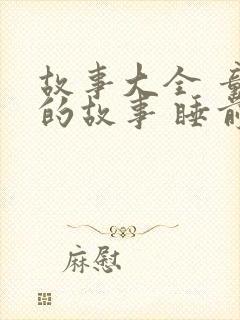 故事大全
的故事 睡前
麻慰